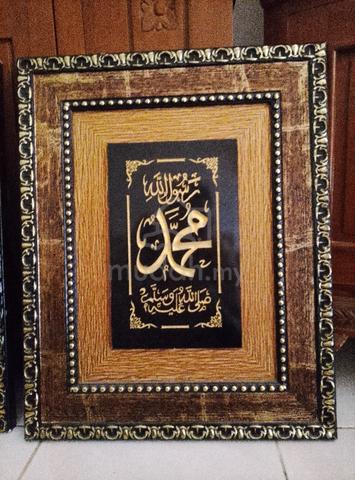 رسول الله
محمد
صلى الله عليه وسلم
mudah.my